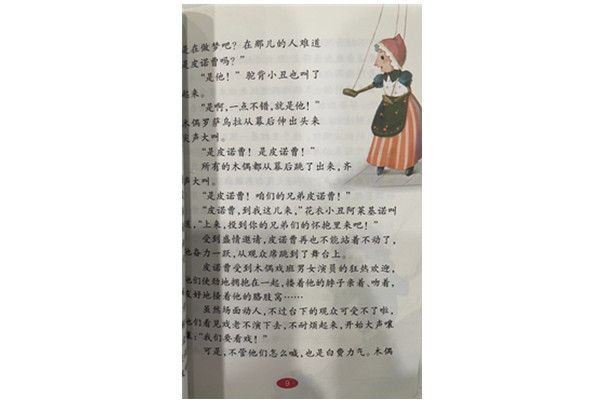 是在做梦吧？在那儿的人难道
是皮诺曹吗？”
“是他！”驼背小丑也叫了
起来。
“是啊,一点不错,就是他！”
木偶罗萨乌拉从幕后伸出头来
尖声大叫。
“是皮诺曹！是皮诺曹！”
所有的木偶都从幕后跳了出来,齐
声大叫。
“是皮诺曹！咱们的兄弟皮诺曹！”
“皮诺曹,到我这儿来,”花衣小丑阿莱基诺叫
道,“上来,投到你的兄弟们的怀抱里来吧！”
受到盛情邀请,皮诺曹再也不能站着不动了,
他奋力一跃,从观众席跳到了舞台上。
皮诺曹受到木偶戏班男女演员的狂热欢迎,
他们使劲地拥抱在一起,搂着他的脖子亲着、吻着,
友好地搔着他的胳肢窝……
虽然场面动人,不过台下的观众可受不了啦,
他们看见戏老不演下去,不耐烦起来,开始大声嚷
嚷:“我们要看戏！”
可是,不管他们怎么喊,也是白费力气。木偶
9